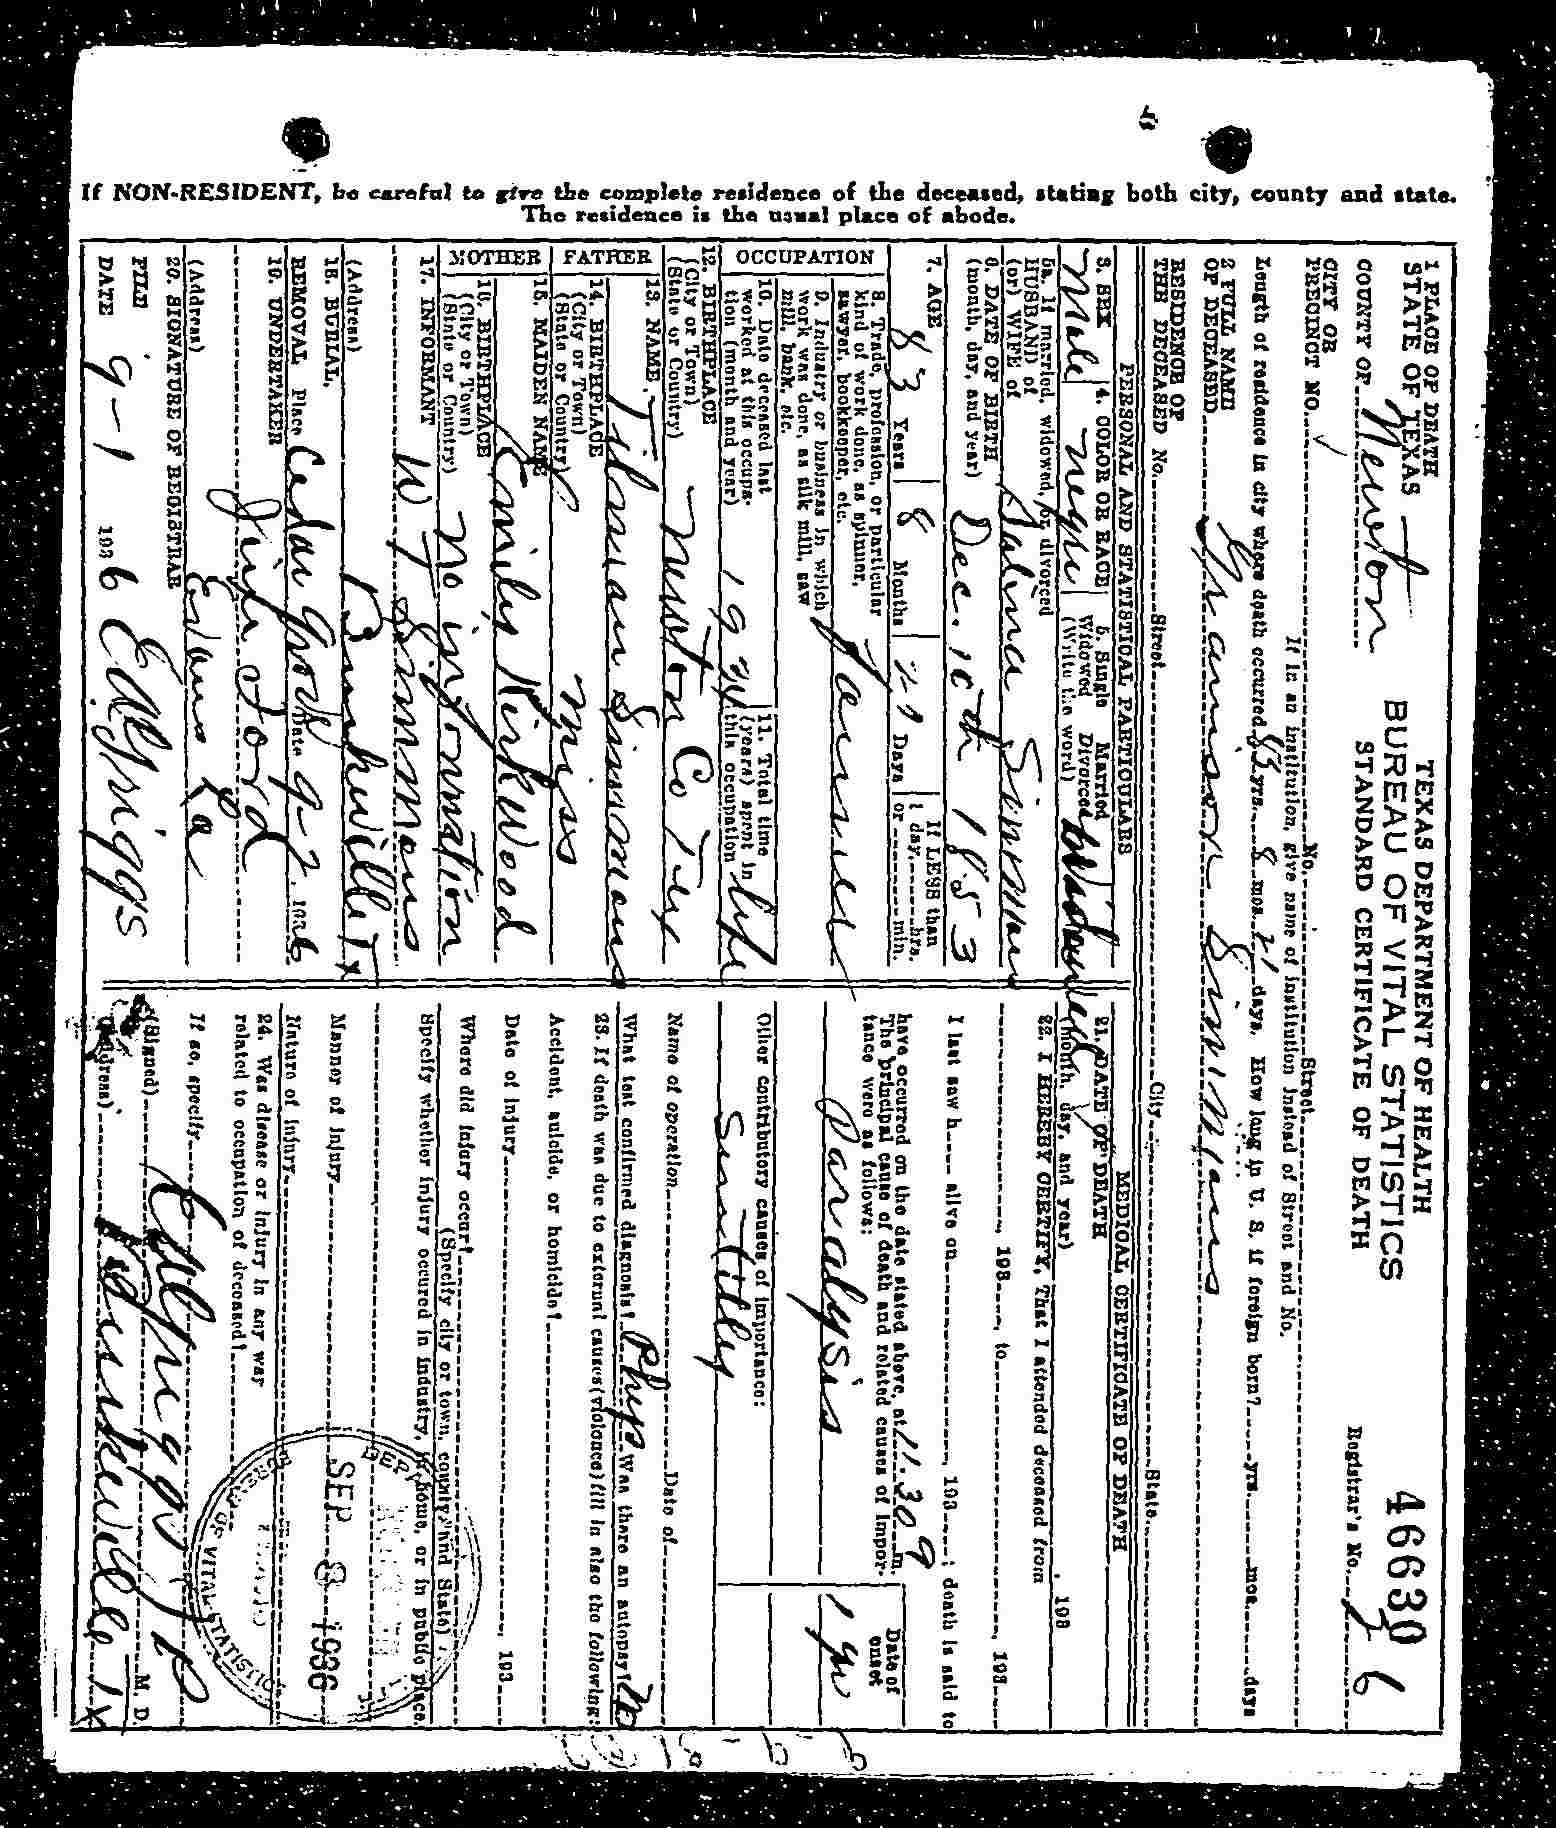 If NON-RESIDENT, be careful to give the complete residence of the deceased, stating both city, county and state.
The residence is the usual place of abode.
TEXAS DEPARTMENT OF HEALTH
BUREAU OF VITAL STATISTICS
STANDARD CERTIFICATE OF DEATH
46630
Registrar's No. 26
1 PLACE OF DEATH
STATE OF TEXAS
COUNTY OF Newton
CITY OR
PRECINCT NO. No. Street
If in an institution, give name of institution instead of Street and No.
Length of residence in city where death occurred 83 yrs. 8 mos. 21 days. How long in U. S. if foreign born? yrs. mos. days
2 FULL NAME
OF DECEASED Granison Simmons
RESIDENCE OF
THE DECEASED No. Street City State
PERSONAL AND STATISTICAL PARTICULARS
3. SEX Male
4. COLOR OR RACE negro
5. Single Married
Widowed Divorced
(Write the word) Widowed
5a. If married, widowed, or divorced
HUSBAND of
(or) WIFE of Salina Simmons
6. DATE OF BIRTH
(month, day, and year) Dec. 10th 1853
7. AGE 83 Years 8 Months 21 Days
If LESS than
1 day, hrs.
or min.
OCCUPATION
8. Trade, profession, or particular
kind of work done, as spinner,
sawyer, bookkeeper, etc. Farmer
9. Industry or business in which
work was done, as silk mill, saw
mill, bank, etc.
10. Date deceased last
worked at this occupa-
tion (month and year) 1934
11. Total time
(years) spent in
this occupation life
12. BIRTHPLACE
(City or Town)
(State or Country) Newton Co Tex
FATHER
13. NAME Tilman Simmons
14. BIRTHPLACE
(City or Town)
(State or Country) Miss
MOTHER
15. MAIDEN NAME Emily Kirkwood
16. BIRTHPLACE
(City or Town)
(State or Country) No information
17. INFORMANT W Simmons
(Address) Burkeville Tx
18. BURIAL,
REMOVAL Place Cedar Grove Date 9-2, 1936
19. UNDERTAKER Jim Ford
(Address) Evans La
20. SIGNATURE OF REGISTRAR
FILE
DATE 9-1 1936 E A Griggs
MEDICAL CERTIFICATE OF DEATH
21. DATE OF DEATH
(month, day, and year) , 193
22. I HEREBY CERTIFY, That I attended deceased from
, 193 , to , 193
I last saw h alive on , 193 ; death is said to
have occurred on the date stated above, at 11.30 9 m.
The principal cause of death and related causes of impor-
tance were as follows:
Date of
onset
Paralysis 1 yr
Other contributory causes of importance:
Name of operation Date of
What test confirmed diagnosis? Phys Was there an autopsy? No
23. If death was due to external causes (violence) fill in also the following:
Accident, suicide, or homicide?
Date of injury , 193
Where did injury occur?
(Specify city or town, county and State)
Specify whether injury occured in industry, in home, or in public place.
Manner of injury
Nature of injury
24. Was disease or injury in any way
related to occupation of deceased?
If so, specify
(Signed) E A Griggs J P M. D.
(Address) Burkeville Tx
SEP 8 1936
OF VITAL STATISTICS